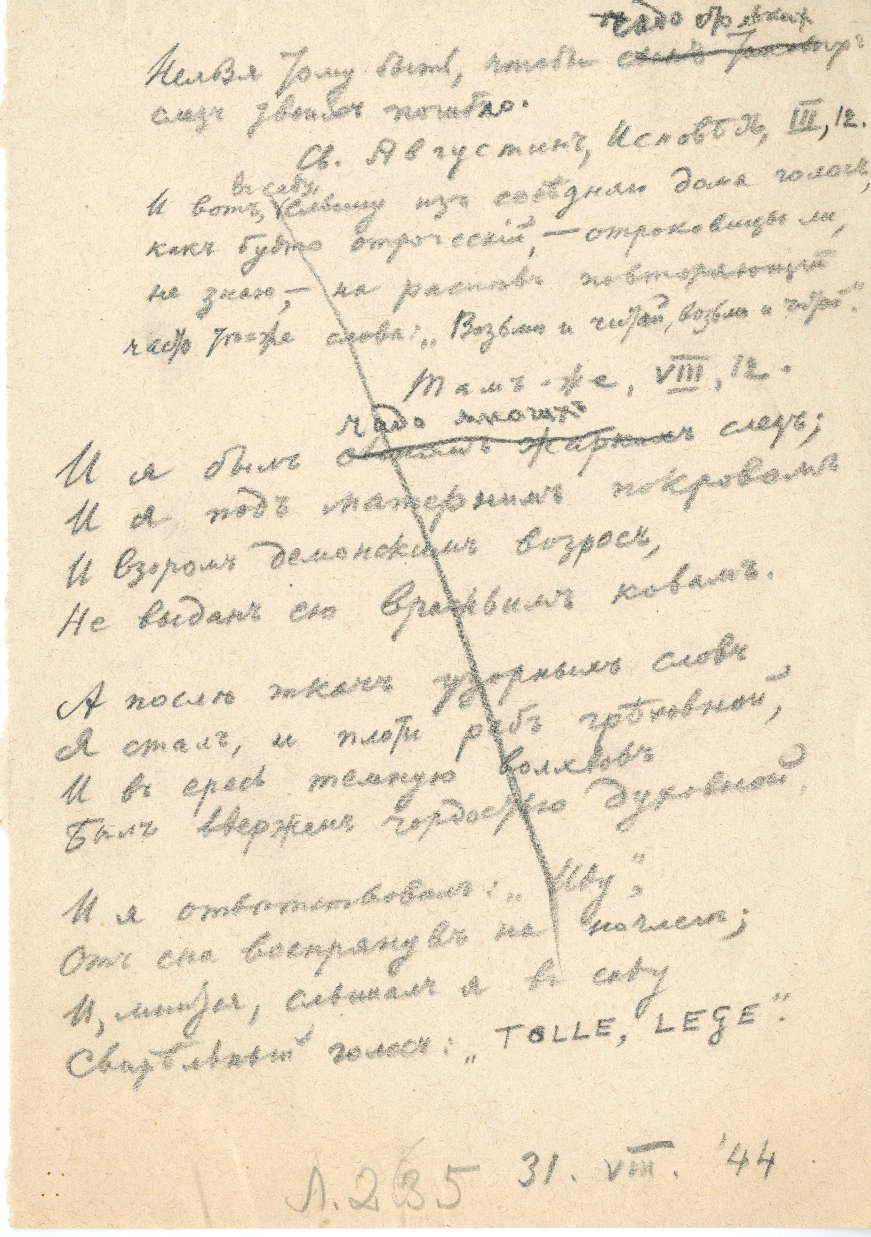 чадо
Нельзя тому быть, чтобы
слезъ твоихъ погибло.
Св. Августинъ, Исповѣд., III, 12.
въ саду
И вотъ, слышу изъ сосѣдняго дома голосъ,
какъ будто отроческій, — отроковицы ли,
не знаю, — на распѣвъ повторяющій
часто тѣ-же слова: „Возьми и читай, возьми и читай“.
Тамъ-же, VIII, 12.
чадо многихъ
И я былъ слезъ;
И я подъ матернимъ покровомъ
И взоромъ демонскимъ возросъ,
Не выданъ ею вражьимъ ковамъ.
А послѣ ткачъ узорныхъ словъ
Я сталъ, и плоти рабъ грѣховной,
И въ ересь темную волхвовъ
Былъ вверженъ гордостью духовной.
И я отвѣтствовалъ: „Иду“,
Отъ сна воспрянувъ на ночлегѣ;
И, мнится, слышалъ я въ саду
Свирѣльный голосъ: „TOLLE, LEGE“.
31. VIII. '44
Л. 235